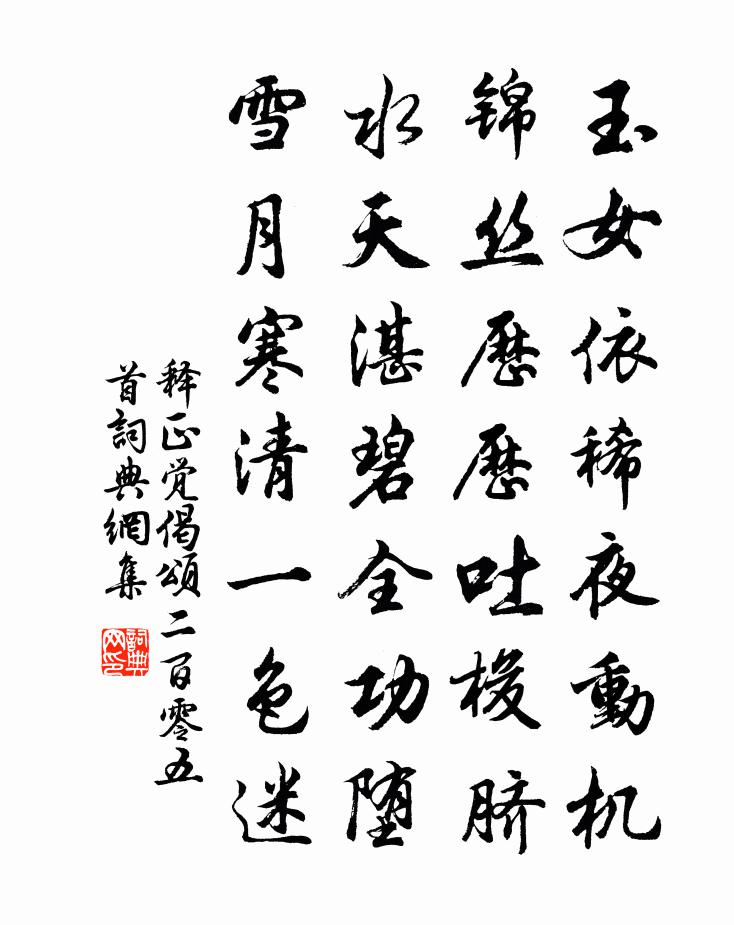 玉女依稀夜動机
锦丝歷歷吐梭脐
水天湛碧全功堕
雪月寒清一色迷
释正觉偈頌二百零五
首詞典網集
詞典网印